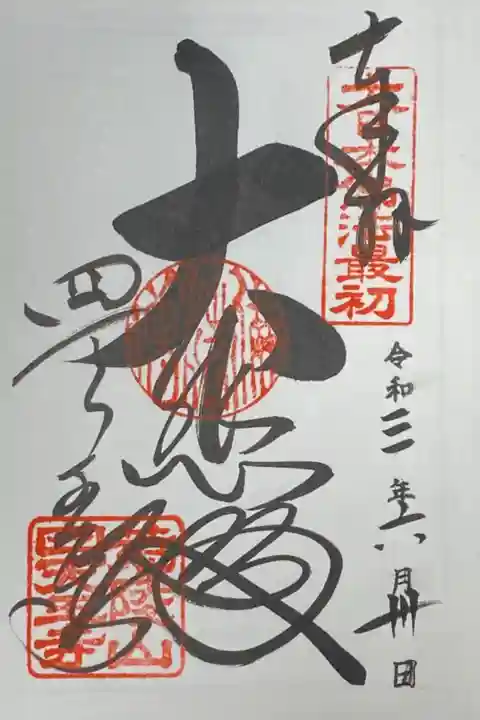 奉拝
大日本佛法最初
令和三年六月卅日
大悲
四天王寺
荒陵山
四天王寺